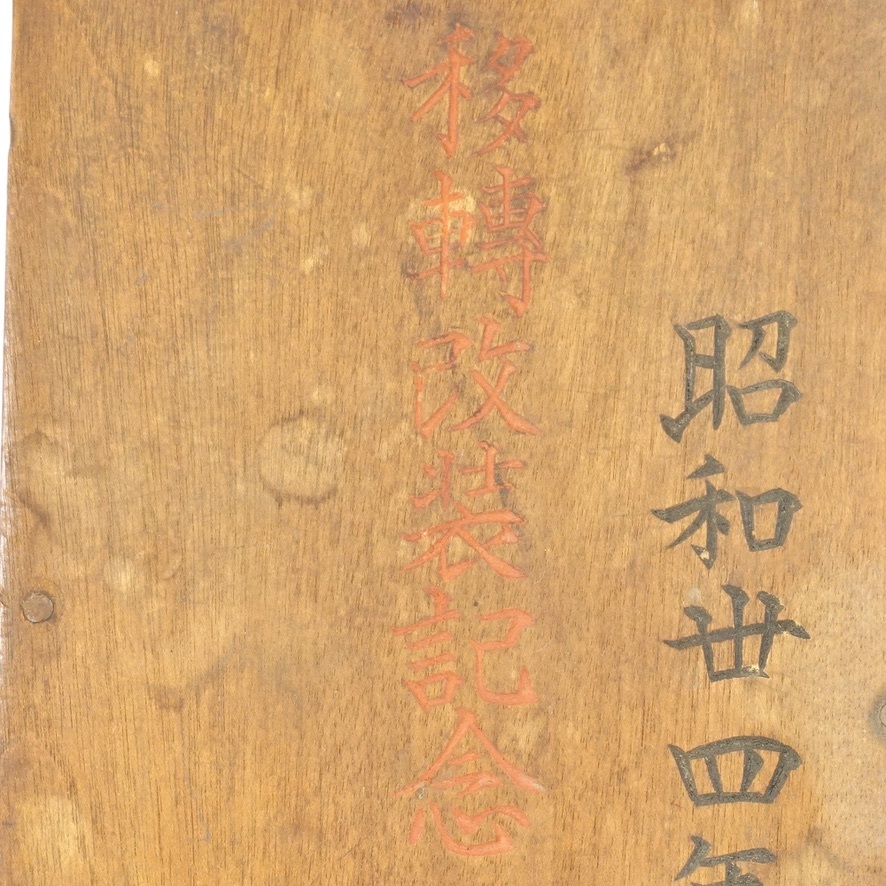 昭和丗四年
移轉改装記念